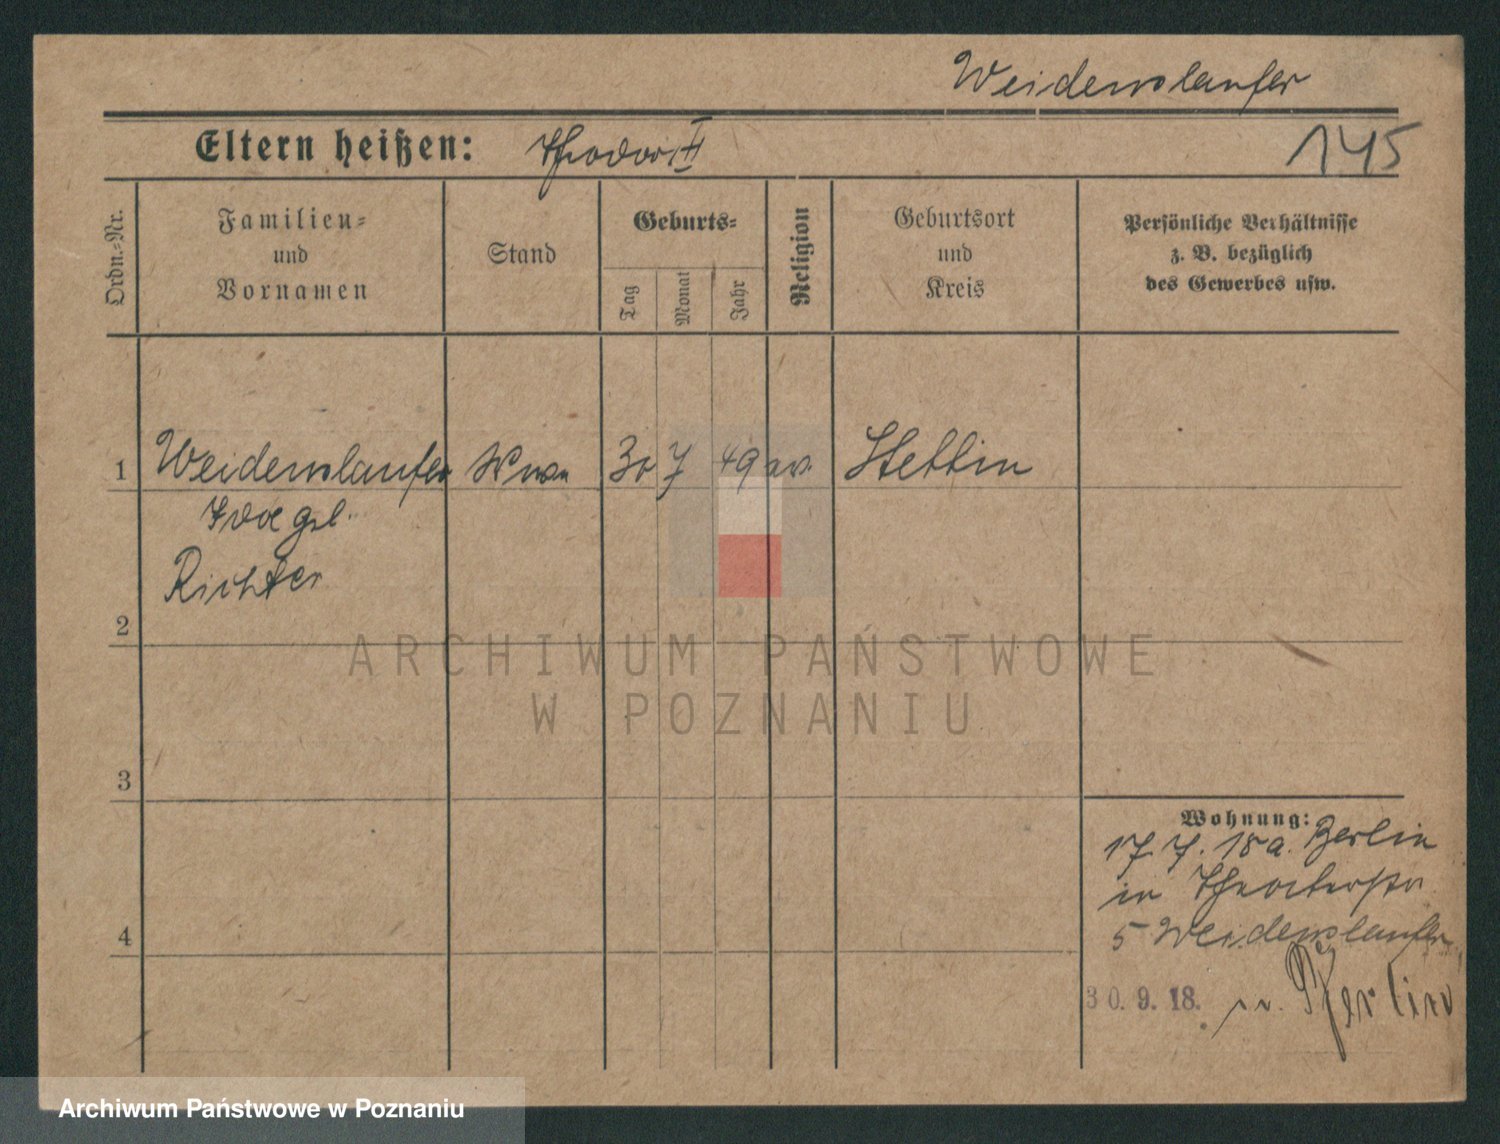 Weidenslaufer
Eltern heißen: Theodor II 145
Ordn.-Nr.
Familien-
und
Vornamen
Stand
Geburts-
Tag
Monat
Jahr
Religion
Geburtsort
und
Kreis
Persönliche Verhältnisse
z. B. bezüglich
des Gewerbes usw.
1 Weidenslaufer Wwe 30 7 49 ev. Stettin
Ida geb.
Richter
2
ARCHIWUM PAŃSTWOWE
W POZNANIU
3
Wohnung:
17.7.18 a. Berlin
in Theaterstr
5 Weidenslaufer
4
30.9.18. n. Berlin
Archiwum Państwowe w Poznaniu